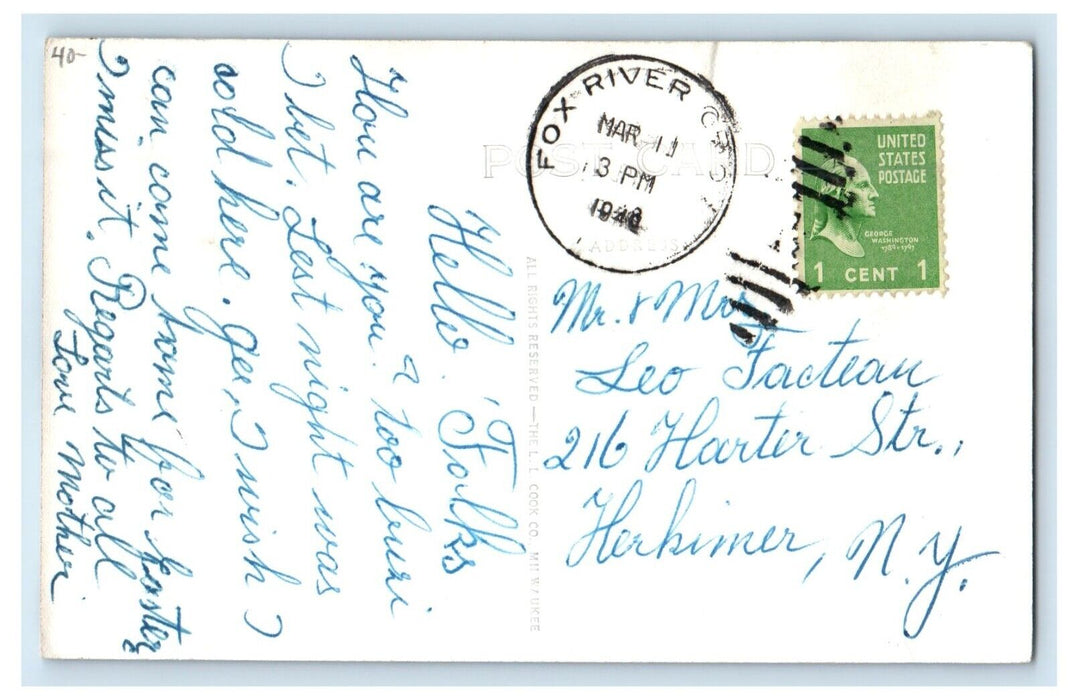 40-
Hello, Folks
How are you? too buri
I bet. Lest night was
cold here. gee, I wish I
can come home for Easter
I miss it. Regarts to all
Love Mother
POST CARD
ADDRESS
FOX RIVER
MAR 11
3 PM
UNITED
STATES
POSTAGE
GEORGE
WASHINGTON
1789-1797
1 CENT 1
ALL RIGHTS RESERVED—THE L. L. COOK CO. MILWAUKEE
Mr. & Mrs
Leo Facteau
216 Harter Str.,
Herkimer, N.Y.